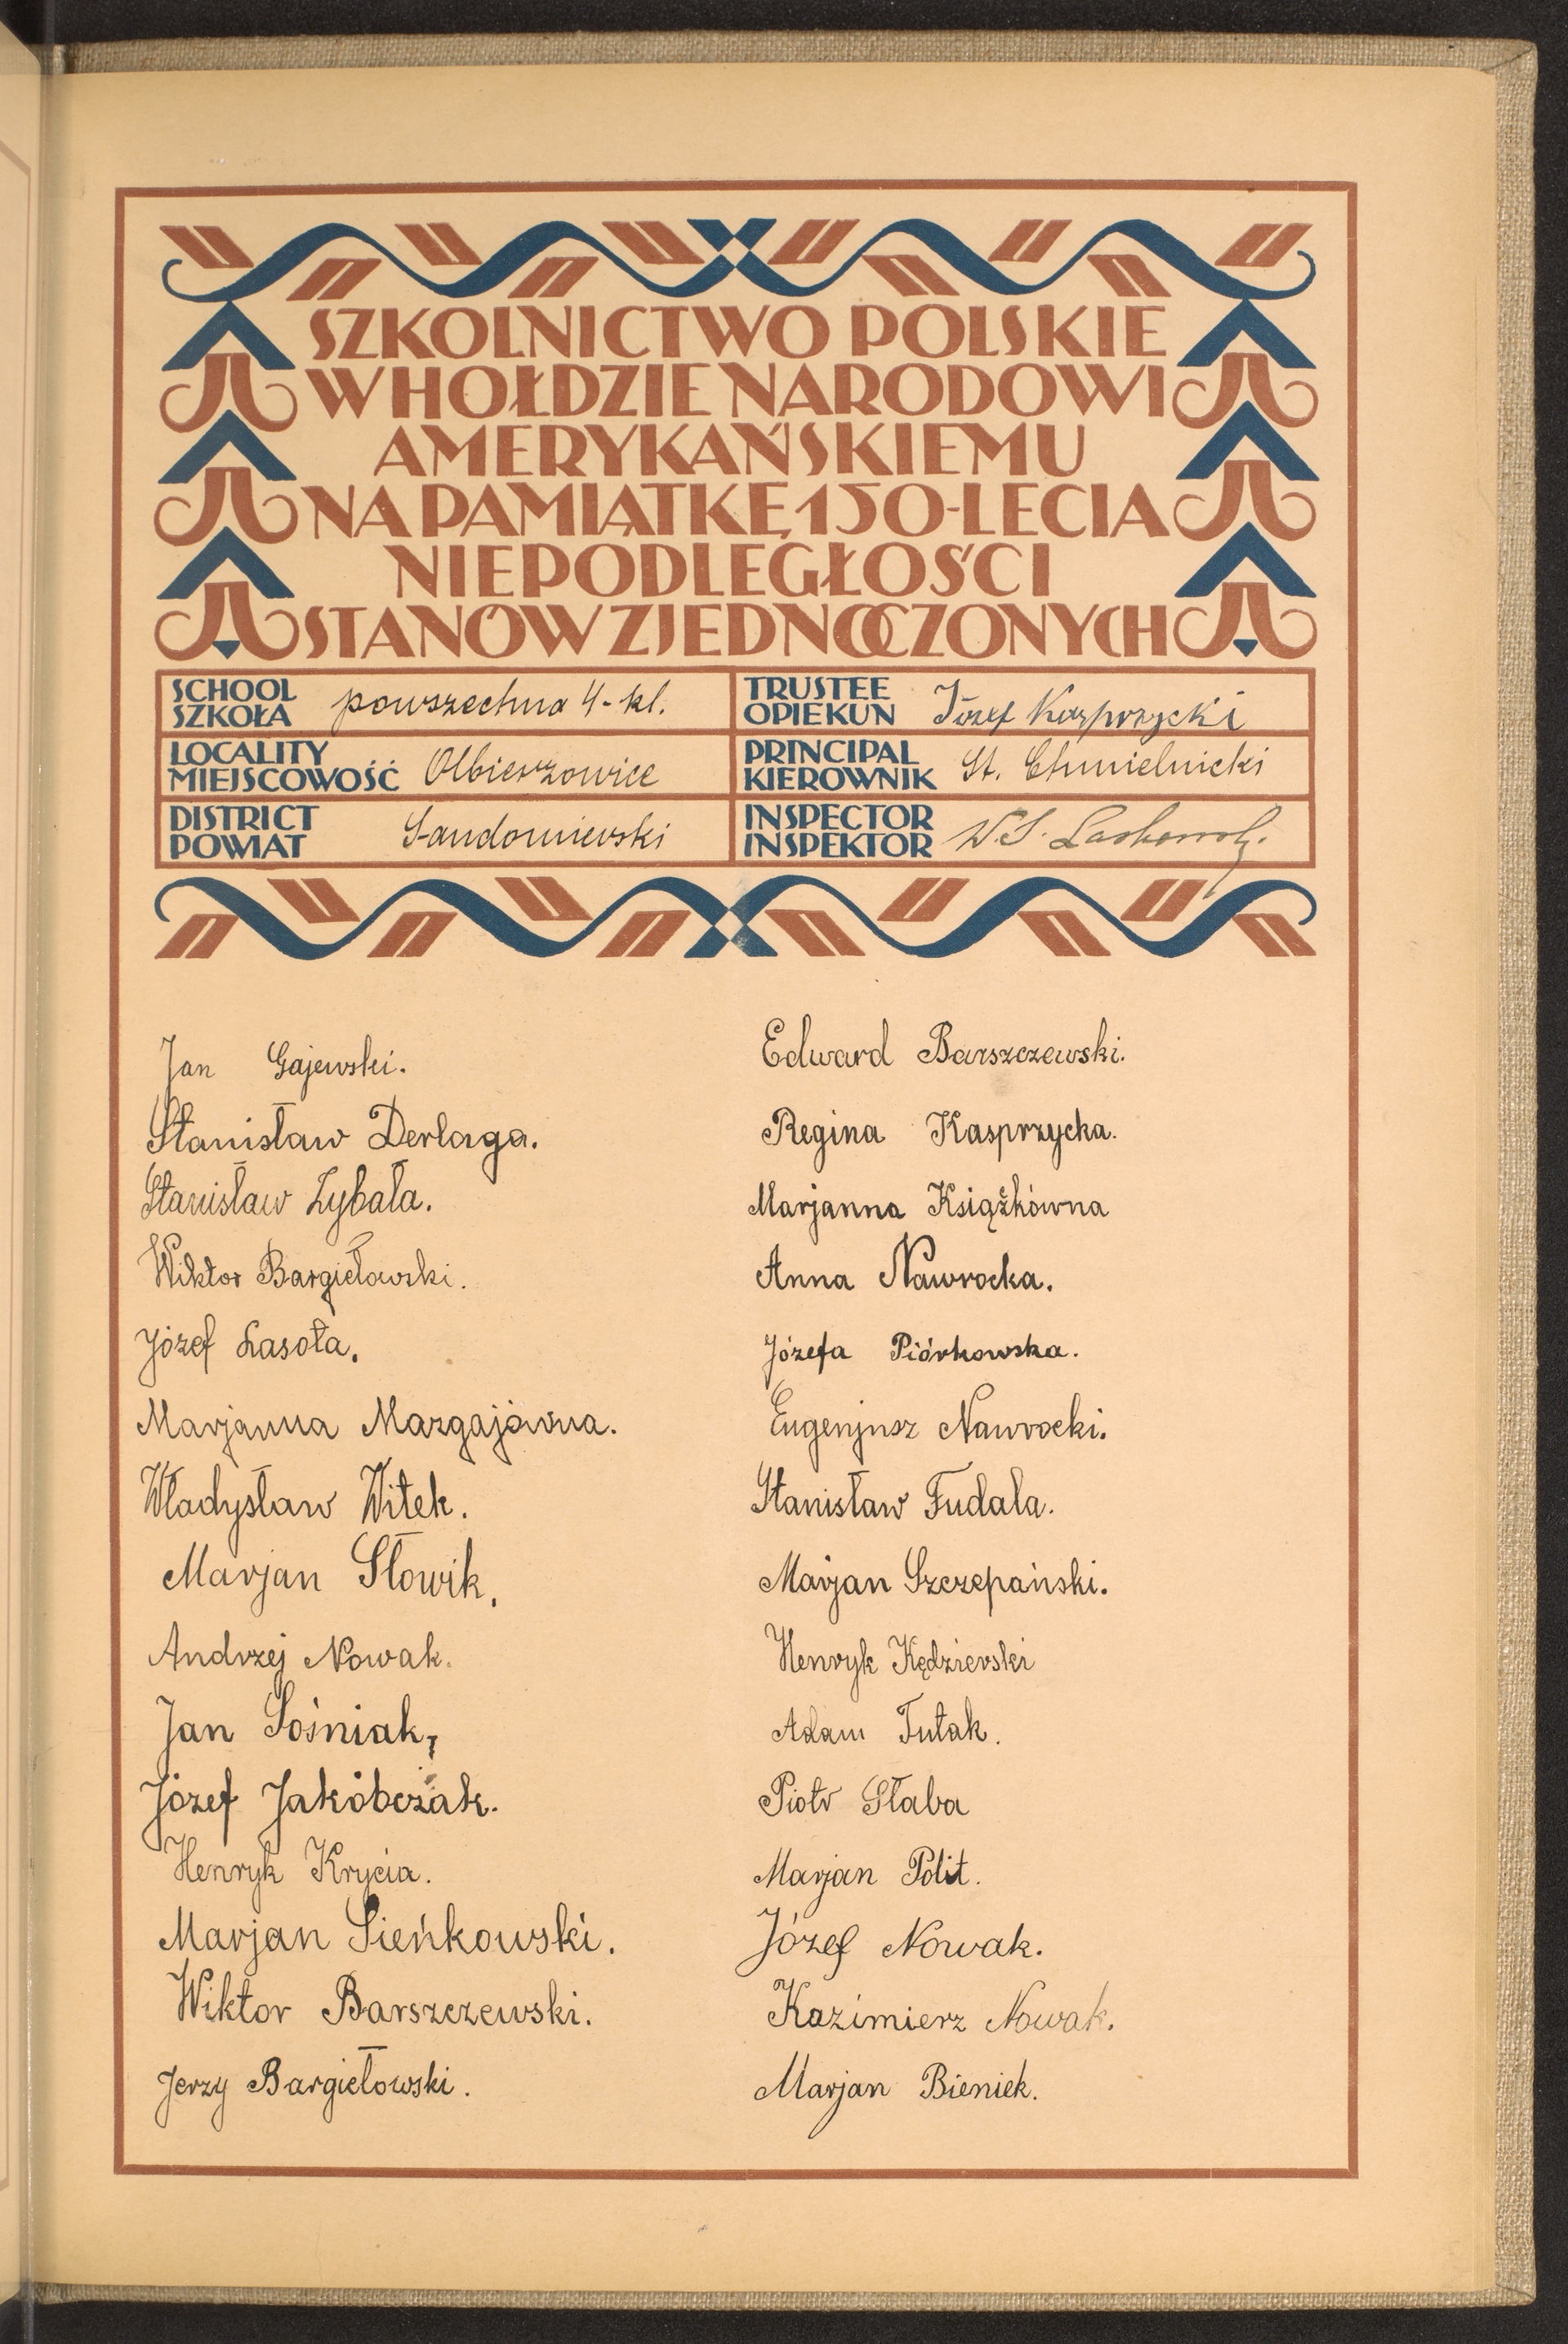 SZKOLNICTWO POLSKIE
W HOŁDZIE NARODOWI
AMERYKAŃSKIEMU
NA PAMIĄTKĘ 150-LECIA
NIEPODLEGŁOŚCI
STANÓW ZJEDNOCZONYCH
SCHOOL
SZKOŁA
powszechna 4-kl.
TRUSTEE
OPIEKUN
Józef Kasprzycki
LOCALITY
MIEJSCOWOŚĆ
Olbierzowice
PRINCIPAL
KIEROWNIK
St. Chmielnicki
DISTRICT
POWIAT
Sandomierski
INSPECTOR
INSPEKTOR
W. S.
Jan Gajewski.
Stanisław Derlaga.
Stanisław Zybała.
Wiktor Bargiełowski.
Józef Lasota.
Marjanna Mazgajówna.
Władysław Witek.
Marjan Słowik.
Andrzej Nowak.
Jan Sośniak,
Józef Jakóbczak.
Henryk Krycia.
Marjan Sieńkowski.
Wiktor Barszczewski.
Jerzy Bargiełowski.
Edward Barszczewski.
Regina Kasprzycka.
Marjanna Książkówna
Anna Nawrocka.
Józefa Piórkowska.
Eugenjusz Nawrocki.
Stanisław Fudala.
Marjan Szczepański.
Henryk Kędzierski
Adam Tutak.
Piotr Słaba
Marjan Polit.
Józef Nowak.
Kazimierz Nowak.
Marjan Bieniek.